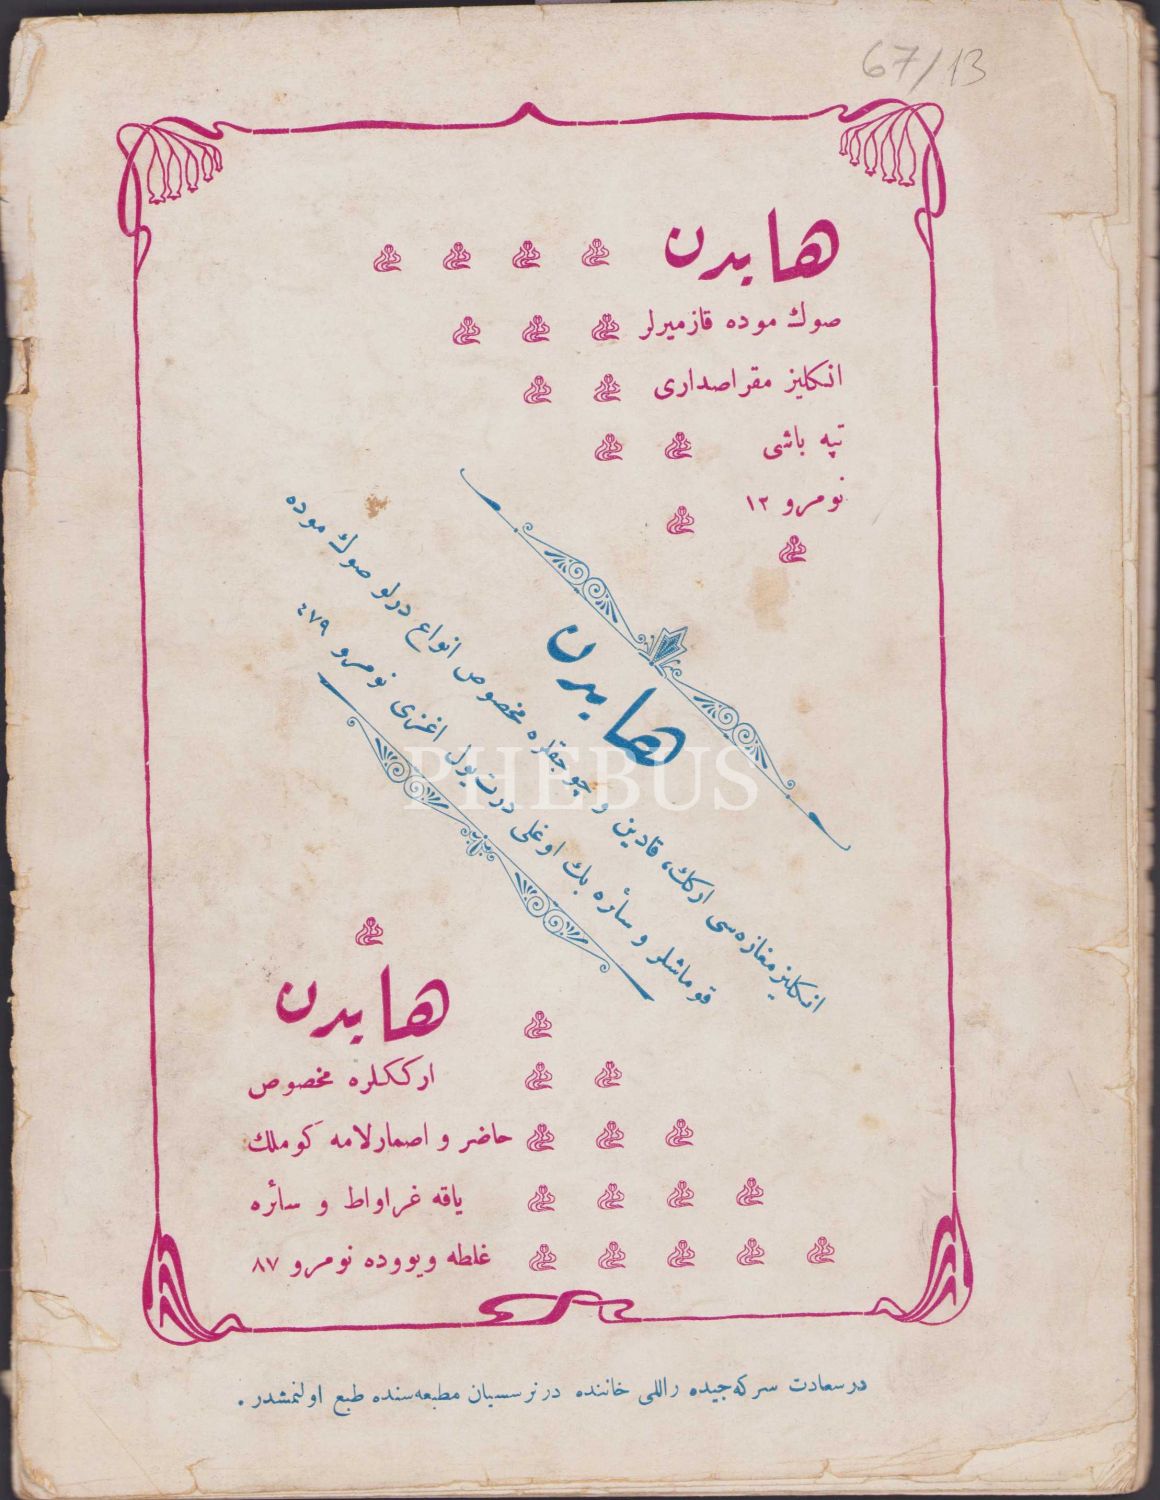 67/13
هايدن
صوك موده قازميرلر
انكليز مقراصداری
تپه باشی
نومرو ١٢
هايدن
انكليز مغازه‌سی اركك، قادين و چوجقلره مخصوص انواع درلو صوك موده
قوماشلر و سأره بك اوغلی درت يول اغزی نومرو ٤٧٩
PHEBUS
هايدن
ارككلره مخصوص
حاضر و اصمارلامه كوملك
ياقه غراواط و سأره
غلطه ويووده نومرو ٨٧
درسعادت سركه‌جيده راللی خاننده درنرسسيان مطبعه‌سنده طبع اولنمشدر.